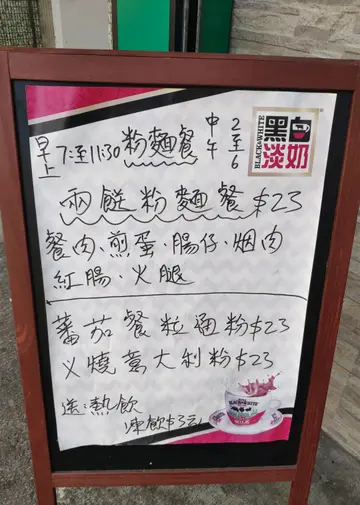 早上 7:至11:30 粉麵餐 中午 2至6
BLACK&WHITE
黑白
淡奶
兩餸粉麵餐$23
餐肉、煎蛋、腸仔、烟肉
紅腸、火腿
蕃茄餐粒通粉$23
乂燒意大利粉$23
送:熱飲
凍飲$3元
BLACK&WHITE
MILK